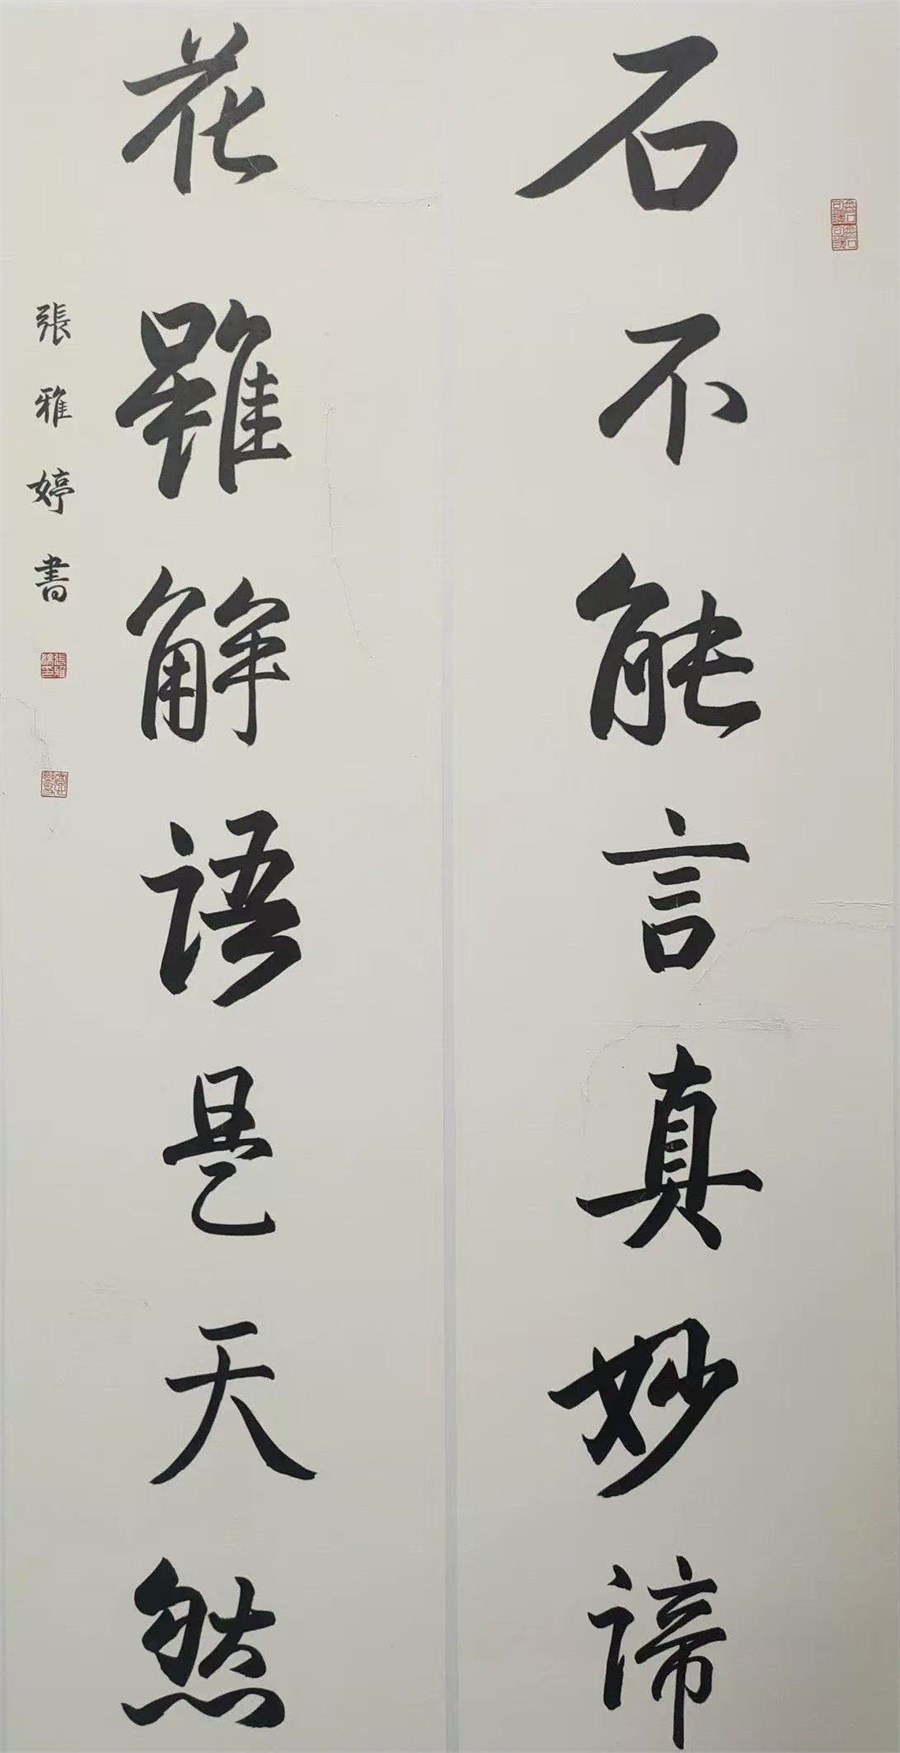 石不能言真妙諦
花雖解語是天然
張雅婷書